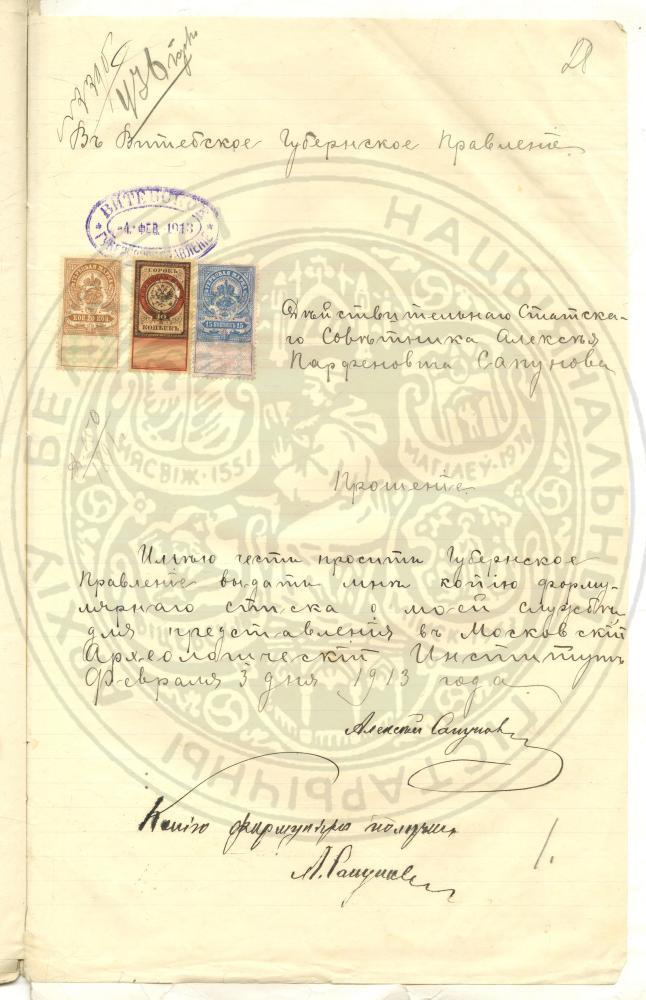 28
Въ Витебское Губернское Правленіе.
ВИТЕБСКОЕ
4. ФЕВ. 1913
ГУБЕРНСКОЕ ПРАВЛЕНІЕ
ГЕРБОВАЯ МАРКА
КОП 20 КОП
СОРОКЪ
40
КОПѢЕКЪ
ГЕРБОВАЯ МАРКА
15 КОПѢЕКЪ 15
Дѣйствительнаго Статска-
го Совѣтника Алексѣя
Парѳеновича Сапунова
Прошеніе.
Имѣю честь просить Губернское
Правленіе выдать мнѣ копію форму-
лярнаго списка о моей службѣ
для представленія въ Московскій
Археологическій Институтъ
Февраля 3 дня 1913 года
Алексѣй Сапуновъ
Копію формуляра получилъ
А. Сапуновъ
1.
НАЦЫЯНАЛЬНЫ
ГІСТАРЫЧНЫ
АРХІЎ БЕЛАРУСІ
НЯСВІЖ·1551
МАГІЛЕЎ·19